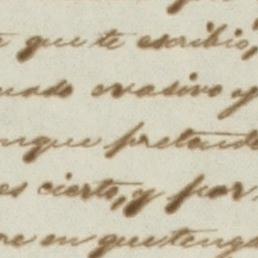 que te escribio,
evasivo y
pretende
es cierto, y por
en que tenga